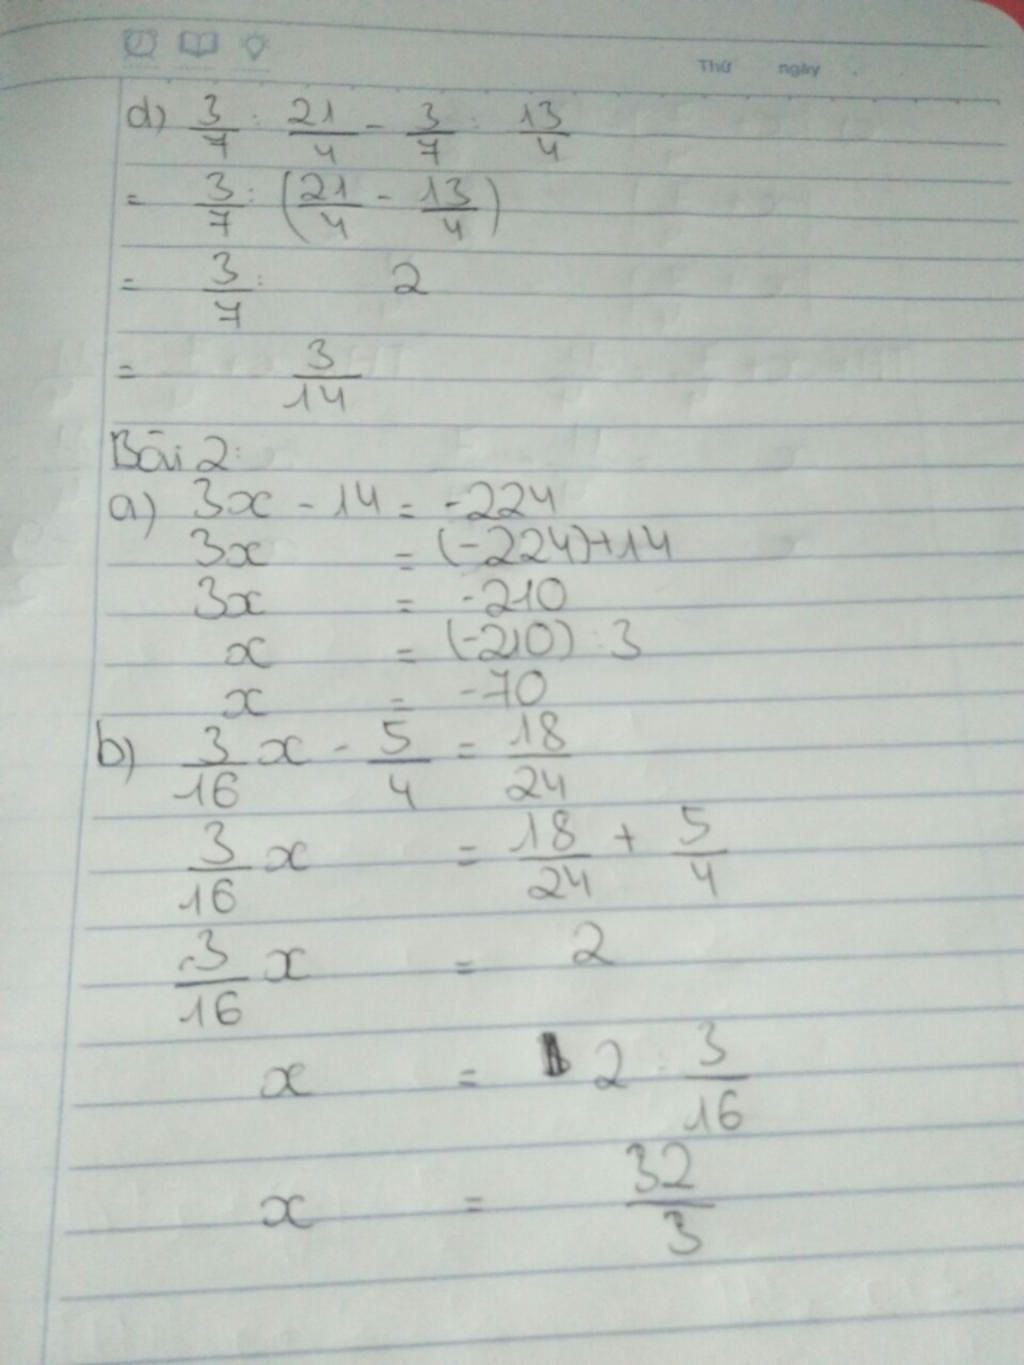 Thứ ngày
d) 3/7 : 21/4 - 3/7 : 13/4
= 3/7 : (21/4 - 13/4)
= 3/7 : 2
= 3/14
Bài 2:
a) 3x - 14 = -224
3x = (-224)+14
3x = -210
x = (-210) : 3
x = -70
b) 3/16 x - 5/4 = 18/24
3/16 x = 18/24 + 5/4
3/16 x = 2
x = 2 : 3/16
x = 32/3